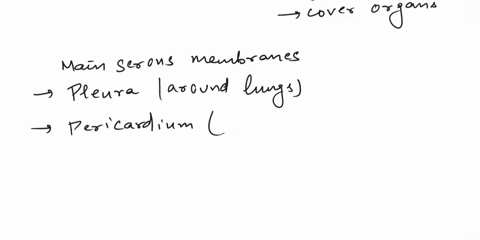 → cover organs
Main serous membranes
→ Pleura (around lungs)
→ Pericardium (